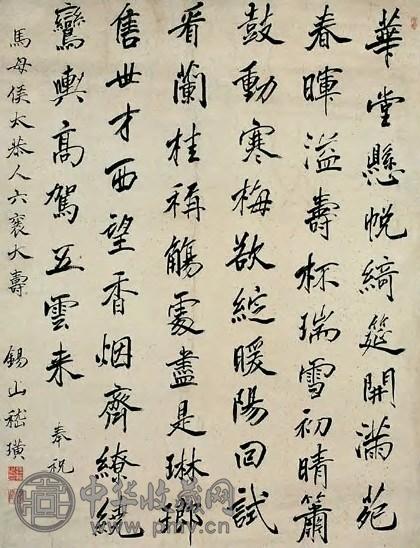 華堂懸帨綺筵開滿苑
春暉溢壽杯瑞雪初晴簫
鼓動寒梅欲綻暖陽回試
看蘭桂稱觴處盡是琳瑯
雋世才西望香烟齊繚繞
鸞輿高駕五雲来 奉祝
馬母侯太恭人六褒大壽 錫山嵇璜
中华收藏网
www.pmy.cn